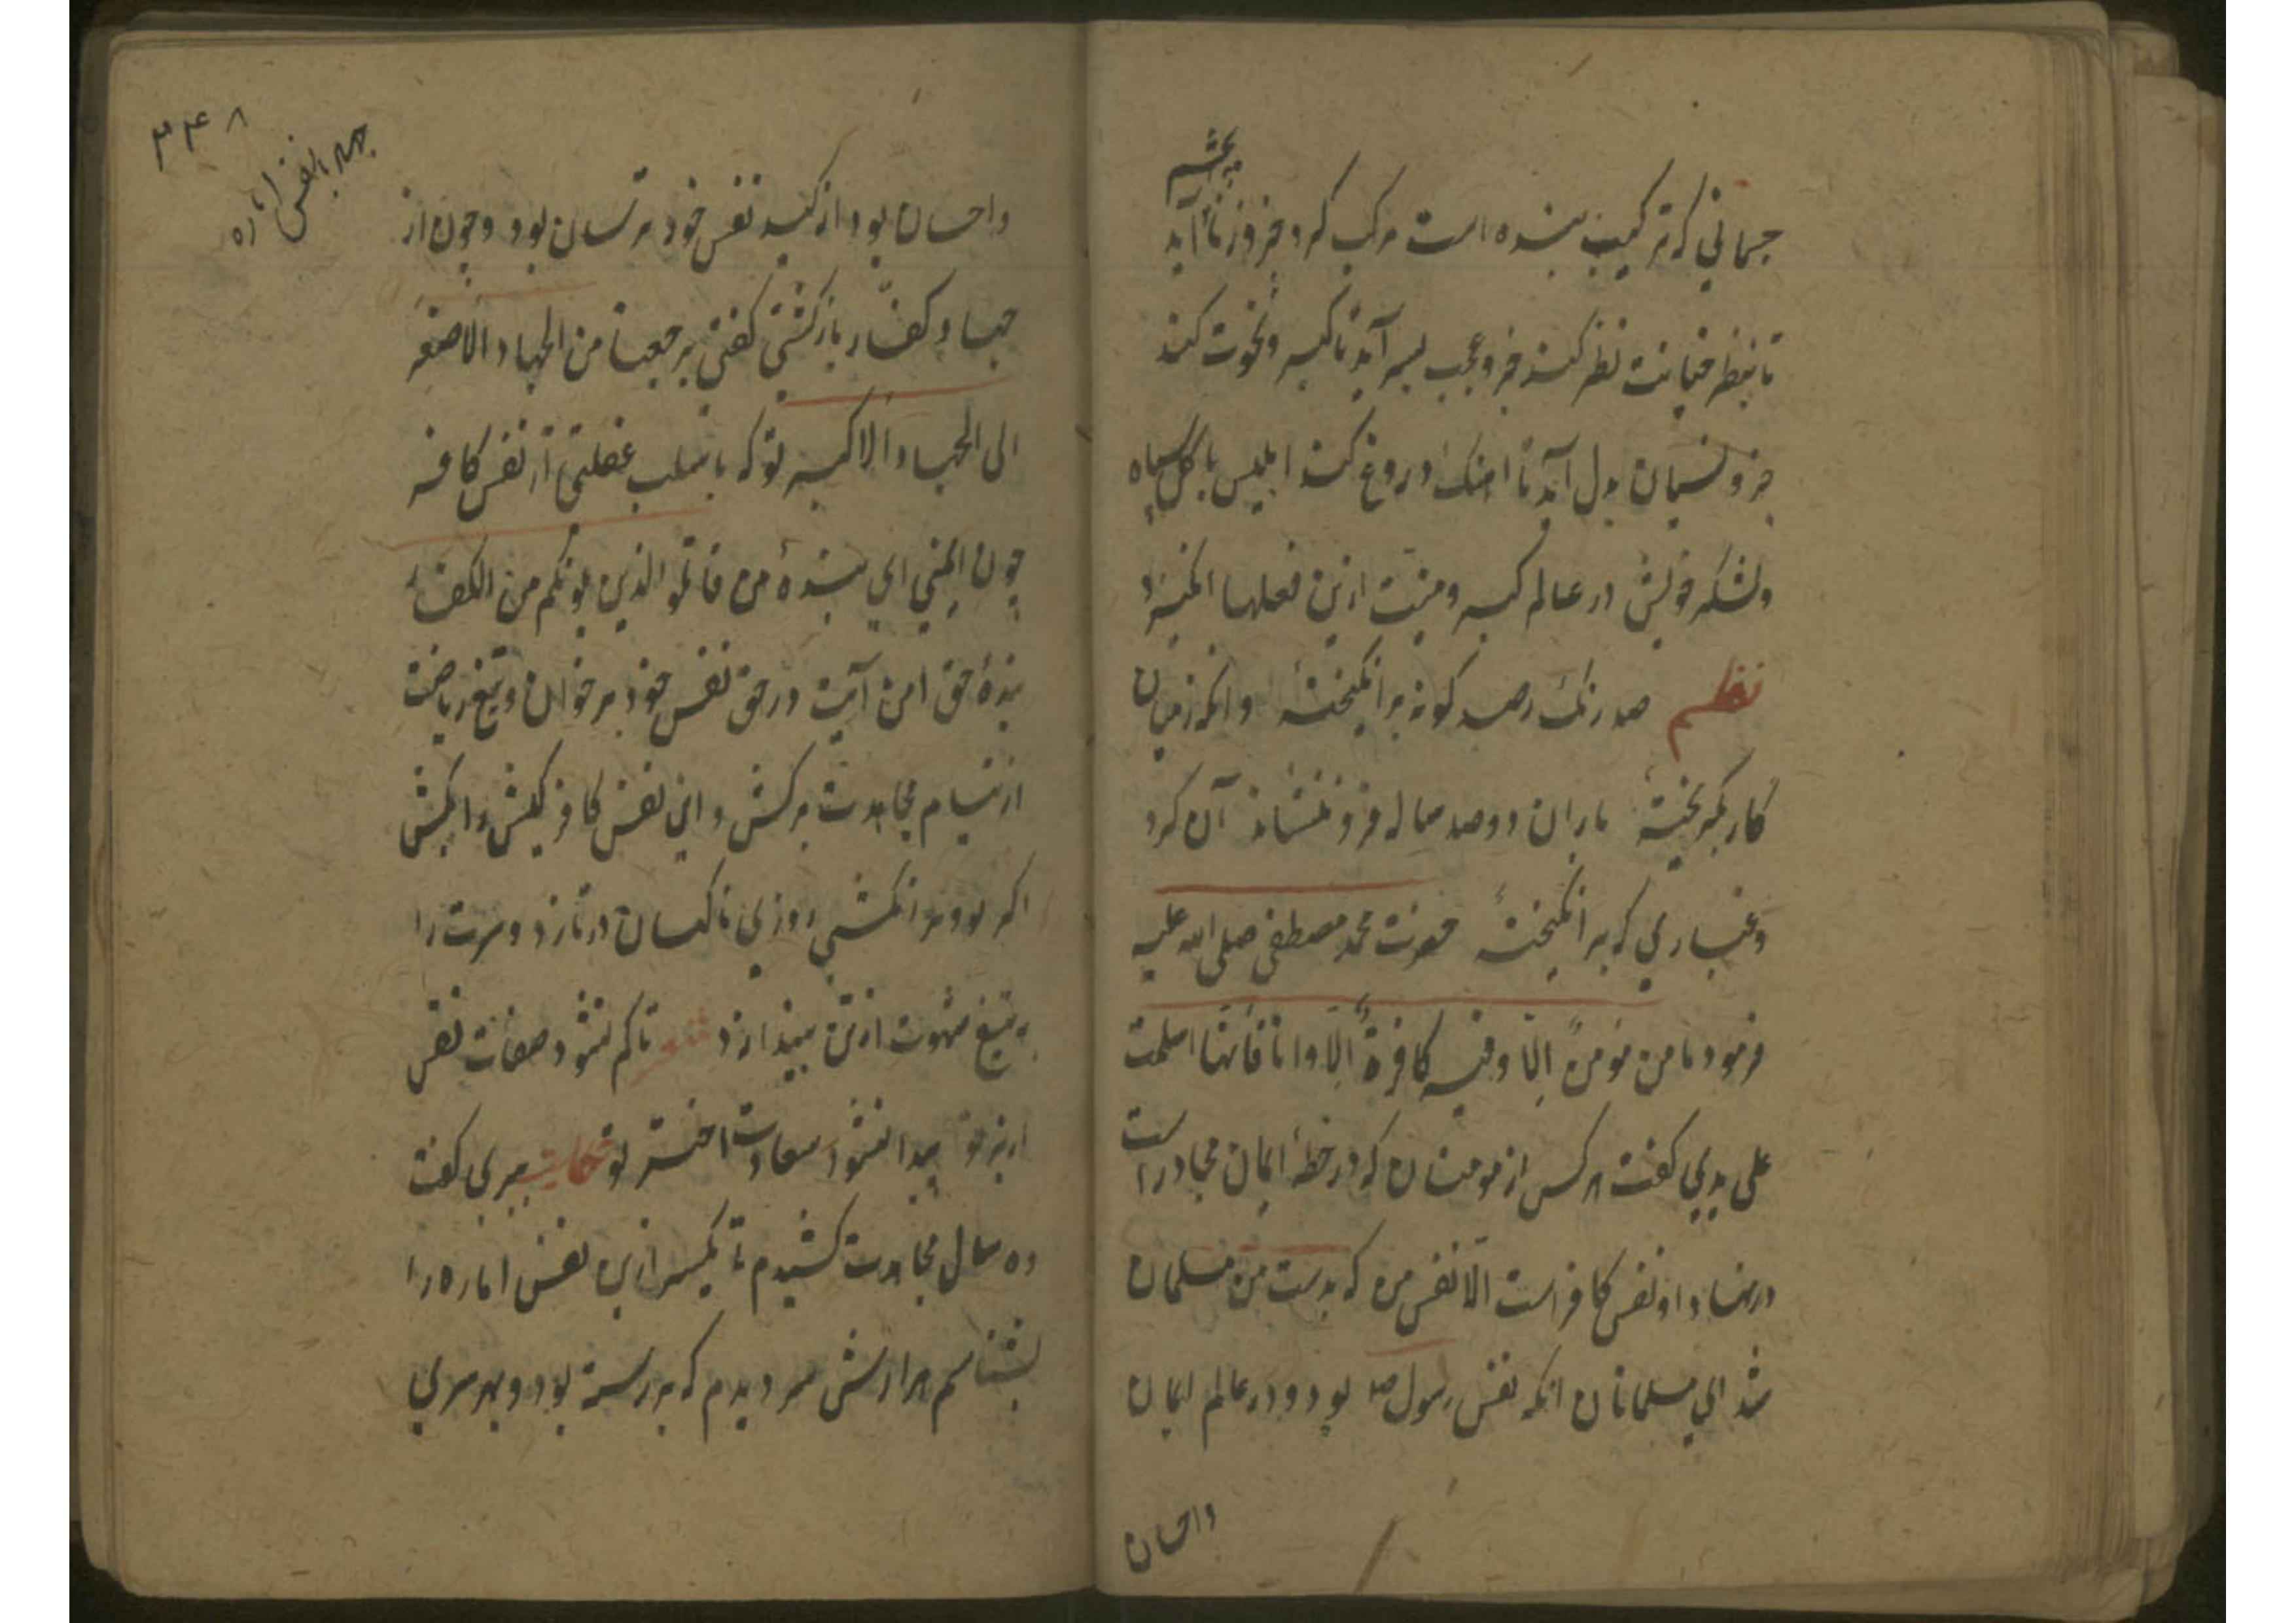 جسمانی که ترکیب بنده است مرکب کرد جزو زنا آید
تا بنظر خیانت نظر کند جزو عجب بسر آید تا کبر و نخوت کند
جزو نسیان بدل آید تا اهنک دروغ کند ابلیس با کل سپاه
ولشکر خویش در عالم کبر و منیت ازین فعلها انکیزد
نظم صد رنک و صد کونه برانکیخته وانکه زمیان
کار بکریخته باران دو صد ساله فرو ننشاند آن کرد
و غباری که برانکیخته حضرت محمد مصطفی صلی الله علیه
فرمود ما من مؤمن الا وفیه کافرة الا وانا فانها اسلمت
علی یدی کفت هر کس از مومنان که در خطهٔ ایمان مجاور است
در نهاد او نفس کافر است الا نفس من که بدست من مسلمان
شد ای مسلمانان انکه نفس رسول بود و در عالم ایمان
واحسان
۳۴۸
جهد با نفس اماره
واحسان بود از کید نفس خود ترسان بود و چون از
جهاد کفار باز کشتی کفتی رجعنا من الجهاد الاصغر
الی الجهاد الاکبر تو که از نفس کافر
چون ایمنی ای بندهٔ من قاتلوا الذین یلونکم من الکفار
بندهٔ حق این آیت در حق نفس خود بر خوان و تیغ ریاضت
از نیام مجاهدت برکش و این نفس کافر کیش را بکش
اکر تو ورا نکشی روزی ناکهان در تازد و سرت را
به تیغ شهوت از تن بیندازد شعر تا کم نشود صفات نفس
از بر تو پیدا نشود سعادت اختر تو حکایت پیری کفت
ده سال مجاهدت کشیدم تا یکسر ازین نفس اماره را
بشناسم هزارش سر دیدم که بر رسته بود و بهر سری